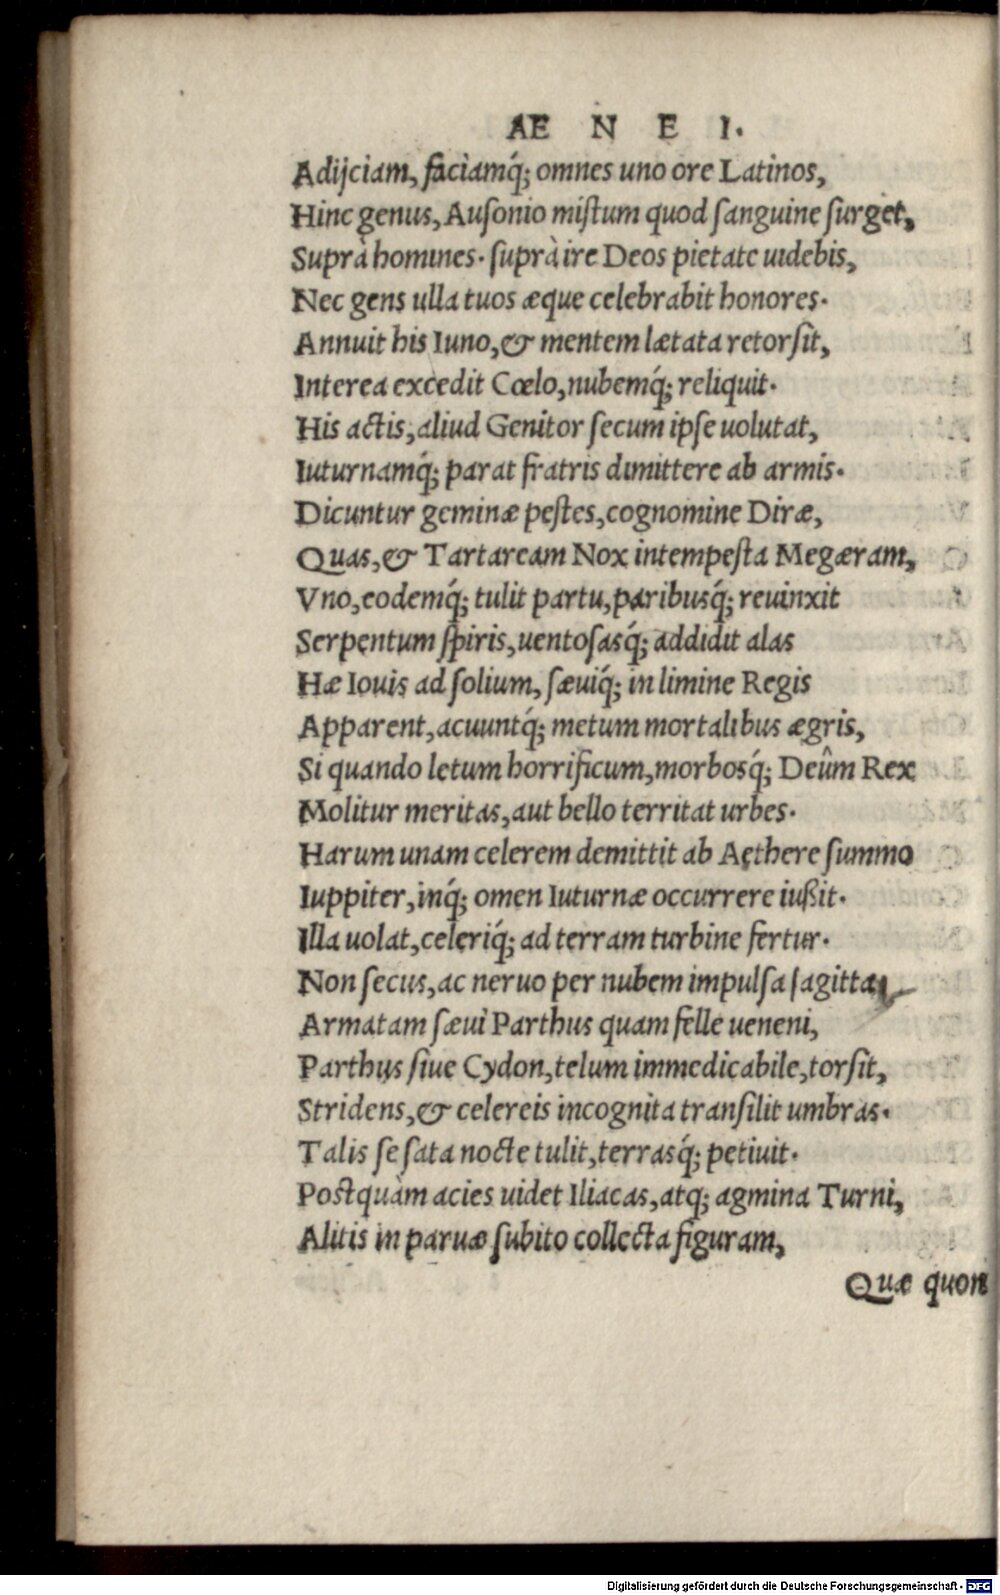 AE N E I.
Adijciam, faciamq́; omnes uno ore Latinos,
Hinc genus, Ausonio mistum quod sanguine surget,
Suprà homines. suprà ire Deos pietate uidebis,
Nec gens ulla tuos æque celebrabit honores.
Annuit his Iuno, & mentem lætata retorsit,
Interea excedit Cœlo, nubemq́; reliquit.
His actis, aliud Genitor secum ipse uolutat,
Iuturnamq́; parat fratris dimittere ab armis.
Dicuntur geminæ pestes, cognomine Diræ,
Quas, & Tartaream Nox intempesta Megæram,
Vno, eodemq́; tulit partu, paribusq́; reuinxit
Serpentum spiris, uentosasq́; addidit alas
Hæ Iouis ad solium, sæuiq́; in limine Regis
Apparent, acuuntq́; metum mortalibus ægris,
Si quando letum horrificum, morbosq́; Deûm Rex
Molitur meritas, aut bello territat urbes.
Harum unam celerem demittit ab Aethere summo
Iuppiter, inq́; omen Iuturnæ occurrere iußit.
Illa uolat, celeriq́; ad terram turbine fertur.
Non secus, ac neruo per nubem impulsa sagitta,
Armatam sæui Parthus quam felle ueneni,
Parthus siue Cydon, telum immedicabile, torsit,
Stridens, & celereis incognita transilit umbras.
Talis se sata nocte tulit, terrasq́; petiuit.
Postquàm acies uidet Iliacas, atq; agmina Turni,
Alitis in paruæ subito collecta figuram,
Quæ quon
Digitalisierung gefördert durch die Deutsche Forschungsgemeinschaft - DFG